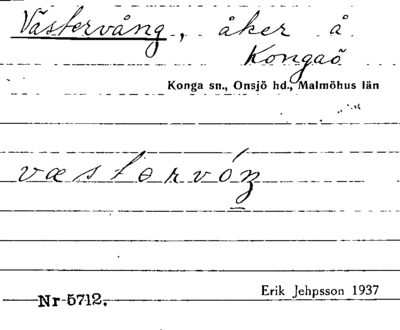 Västervång, åker å
Kongaö
Konga sn., Onsjö hd., Malmöhus län
væstərvóŋ
Nr 5712.
Erik Jehpsson 1937